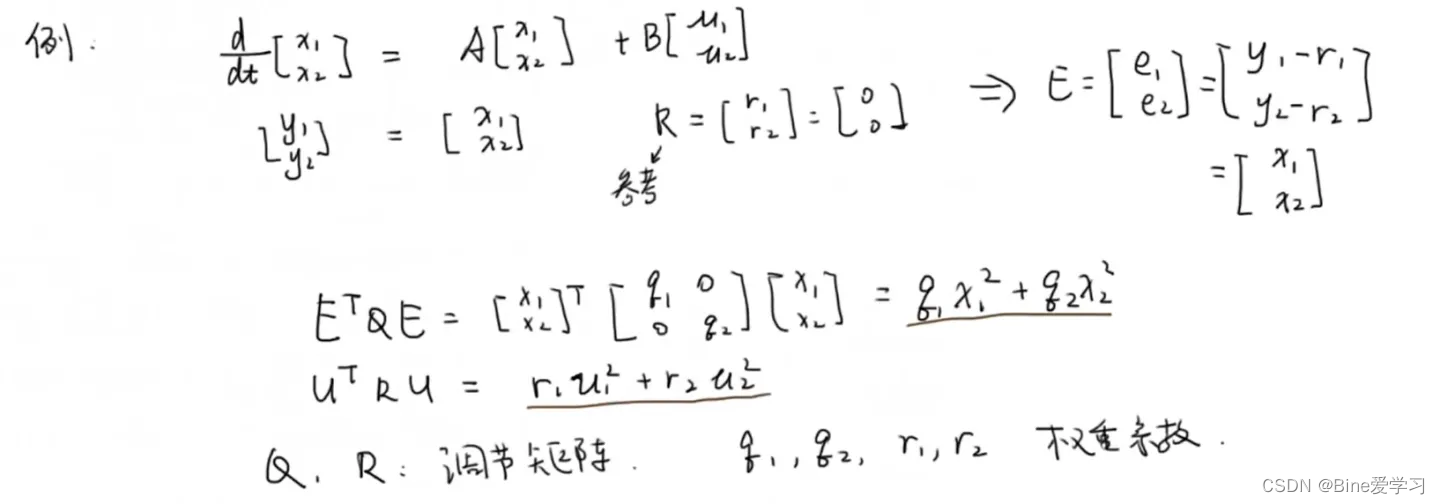 例:
d/dt [x₁ x₂] = A[x₁ x₂] + B[u₁ u₂]
[y₁ y₂] = [x₁ x₂]
R = [r₁ r₂] = [0 0]
参考
⇒ E = [e₁ e₂] = [y₁-r₁ y₂-r₂]
= [x₁ x₂]
EᵀQE = [x₁ x₂]ᵀ [q₁ 0 0 q₂] [x₁ x₂] = q₁x₁² + q₂x₂²
uᵀRu = r₁u₁² + r₂u₂²
Q, R: 调节矩阵. q₁, q₂, r₁, r₂ 权重系数.
CSDN @Bine爱学习